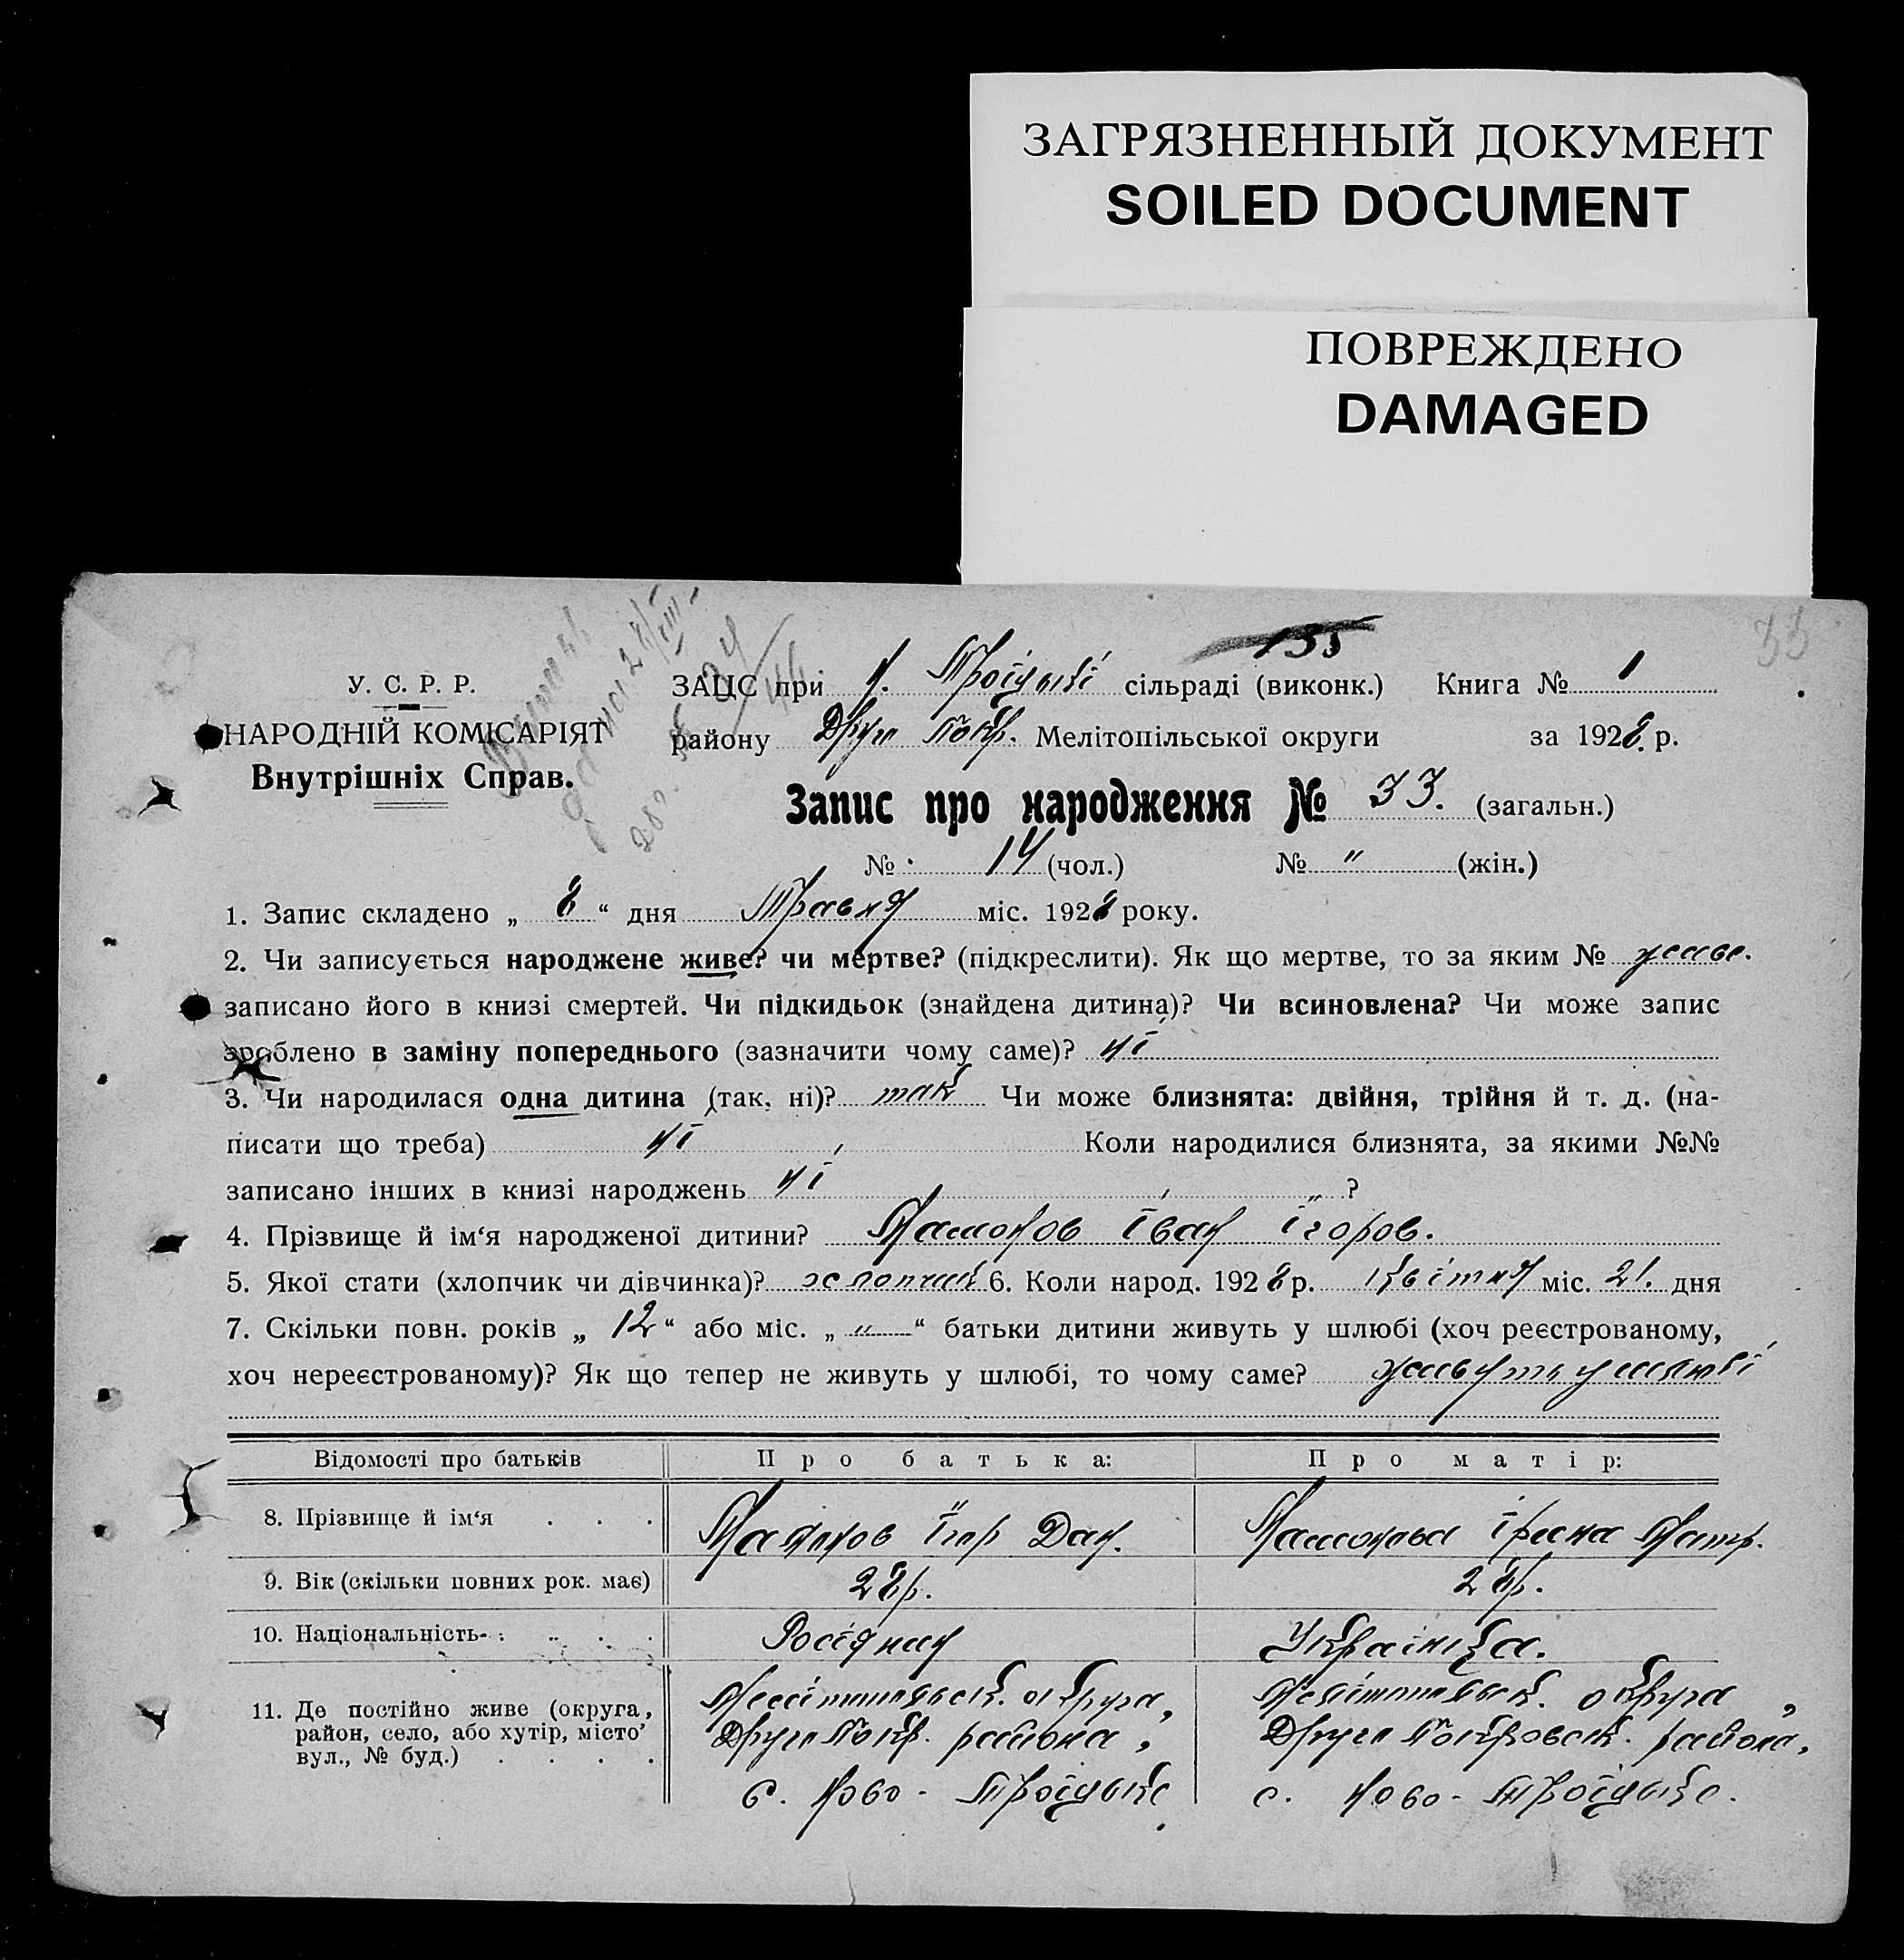 ЗАГРЯЗНЕННЫЙ ДОКУМЕНТ
SOILED DOCUMENT
ПОВРЕЖДЕНО
DAMAGED
33
У. С. Р. Р.
НАРОДНІЙ КОМІСАРІЯТ
Внутрішніх Справ.
ЗАЦС при Н. Троїцькій сільраді (виконк.) Книга № 1
району Друго Покр. Мелітопільської округи за 1928 р.
Запис про народження № 33. (загальн.)
№ 14 (чол.) № " (жін.)
1. Запис складено „ 8 “ дня Травня міс. 1928 року.
2. Чи записується народжене живе? чи мертве? (підкреслити). Як що мертве, то за яким № живе.
записано його в книзі смертей. Чи підкидьок (знайдена дитина)? Чи всиновлена? Чи може запис
зроблено в заміну попереднього (зазначити чому саме)? ні
3. Чи народилася одна дитина (так, ні)? так Чи може близнята: двійня, трійня й т. д. (на-
писати що треба) ні Коли народилися близнята, за якими №№
записано інших в книзі народжень ні ?
4. Прізвище й ім‘я народженої дитини? Іван Ігоров.
5. Якої стати (хлопчик чи дівчинка)? хлопчик 6. Коли народ. 1928 р. Квітня міс. 21. дня
7. Скільки повн. років „ 12 “ або міс. „ " “ батьки дитини живуть у шлюбі (хоч реєстрованому,
хоч нереєстрованому)? Як що тепер не живуть у шлюбі, то чому саме? живуть у шлюбі
Відомості про батьків Про батька: Про матір:
8. Прізвище й ім‘я . . . Ігор Дан. Ірина
9. Вік (скільки повних рок. має) 28 р. 28 р.
10. Національність Росіянин Українка.
11. Де постійно живе (округа, Мелітопільськ. округа, Мелітопільськ. округа,
район, село, або хутір, місто Друго Покр. района, Друго Покровськ. района,
вул., № буд.) . . . . с. Ново-Троїцьке с. Ново-Троїцьке.